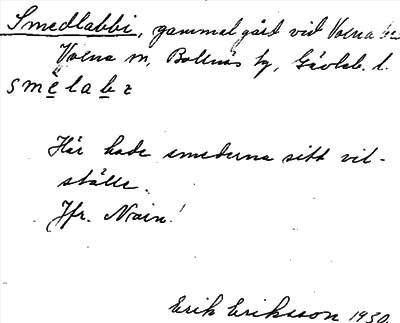 Smedlabbi, gammal gård vid Voxna
Voxna sn, Bollnäs tg, Gävleb. l.
Här hade smederna sitt vil-
ställe.
Jfr. Nain!
Erik Eriksson 1930.